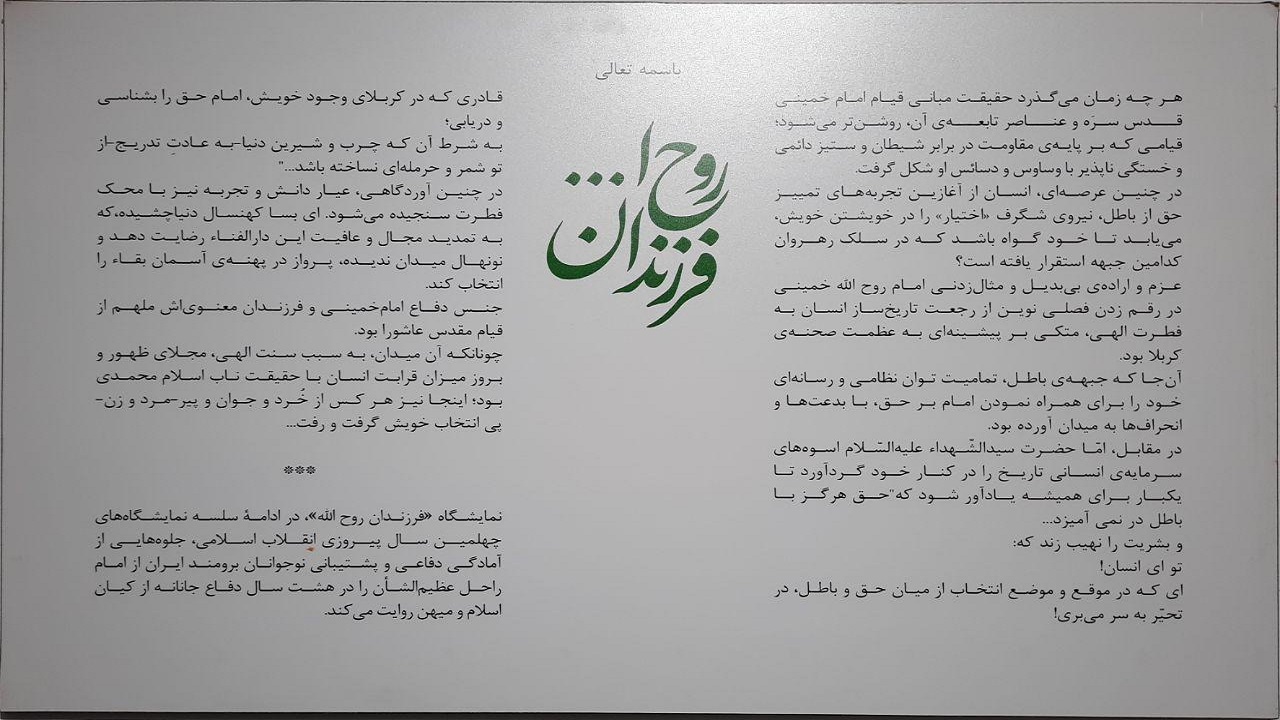 باسمه تعالی
فرزندان روح ا...
هر چه زمان می‌گذرد حقیقت مبانی قیام امام خمینی
قدس سرّه و عناصر تابعه‌ی آن، روشن‌تر می‌شود؛
قیامی که بر پایه‌ی مقاومت در برابر شیطان و ستیز دائمی
و خستگی ناپذیر با وساوس و دسائس او شکل گرفت.
در چنین عرصه‌ای، انسان از آغازین تجربه‌های تمییز
حق از باطل، نیروی شگرف «اختیار» را در خویشتن خویش،
می‌یابد تا خود گواه باشد که در سلک رهروان
کدامین جبهه استقرار یافته است؟
عزم و اراده‌ی بی‌بدیل و مثال‌زدنی امام روح الله خمینی
در رقم زدن فصلی نوین از رجعت تاریخ‌ساز انسان به
فطرت الهی، متکی بر پیشینه‌ای به عظمت صحنه‌ی
کربلا بود.
آن‌جا که جبهه‌ی باطل، تمامیت توان نظامی و رسانه‌ای
خود را برای همراه نمودن امام بر حق، با بدعت‌ها و
انحراف‌ها به میدان آورده بود.
در مقابل، امّا حضرت سیدالشّهداء علیه‌السّلام اسوه‌های
سرمایه‌ی انسانی تاریخ را در کنار خود گردآورد تا
یکبار برای همیشه یادآور شود که"حق هرگز با
باطل در نمی آمیزد...
و بشریت را نهیب زند که:
تو ای انسان!
ای که در موقع و موضع انتخاب از میان حق و باطل، در
تحیّر به سر می‌بری!
قادری که در کربلای وجود خویش، امام حق را بشناسی
و دریابی؛
به شرط آن که چرب و شیرین دنیا-به عادتِ تدریج-از
تو شمر و حرمله‌ای نساخته باشد..."
در چنین آوردگاهی، عیار دانش و تجربه نیز با محک
فطرت سنجیده می‌شود. ای بسا کهنسال دنیاچشیده،که
به تمدید مجال و عافیت این دارالفناء رضایت دهد و
نونهال میدان ندیده، پرواز در پهنه‌ی آسمان بقاء را
انتخاب کند.
جنس دفاع امام‌خمینی و فرزندان معنوی‌اش ملهم از
قیام مقدس عاشورا بود.
چونانکه آن میدان، به سبب سنت الهی، مجلای ظهور و
بروز میزان قرابت انسان با حقیقت ناب اسلام محمدی
بود؛ اینجا نیز هر کس از خُرد و جوان و پیر-مرد و زن-
پی انتخاب خویش گرفت و رفت...
***
نمایشگاه «فرزندان روح الله»، در ادامهٔ سلسه نمایشگاه‌های
چهلمین سال پیروزی انقلاب اسلامی، جلوه‌هایی از
آمادگی دفاعی و پشتیبانی نوجوانان برومند ایران از امام
راحل عظیم‌الشأن را در هشت سال دفاع جانانه از کیان
اسلام و میهن روایت می‌کند.